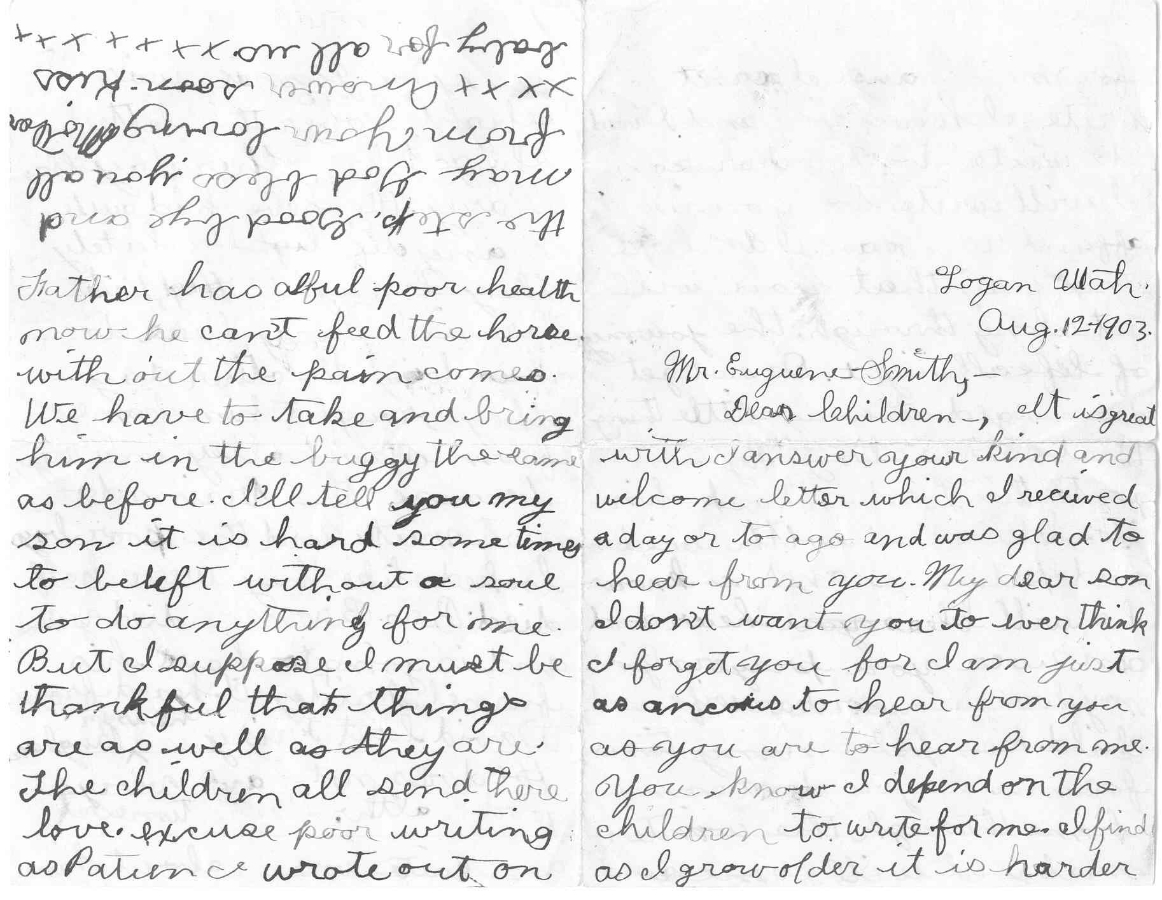 Logan Utah.
Aug. 12-1903.
Mr. Euguene Smith, –
Dear Children –, It is great
with I answer your kind and
welcome letter which I recieved
a day or to ago and was glad to
hear from you. My dear son
I don't want you to ever think
I forget you for I am just
as ancous to hear from you
as you are to hear from me.
You know I depend on the
children to write for me. I find
as I grow older it is harder
Father has alful poor health
now he can't feed the horse
with out the pain comes.
We have to take and bring
him in the buggy the same
as before. I'll tell you my
son it is hard some times
to be left without a soul
to do anything for me.
But I suppose I must be
thankful that things
are as well as they are.
The children all send there
love. excuse poor writing
as Patience wrote out on
the step. Good bye and
may God bless you all
from your loving Mother
xx x + x x x Answer soon. Kiss
baby for all us x x x + x x x +